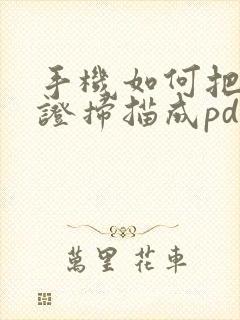 手機如何把
證掃描成pd
萬里花車